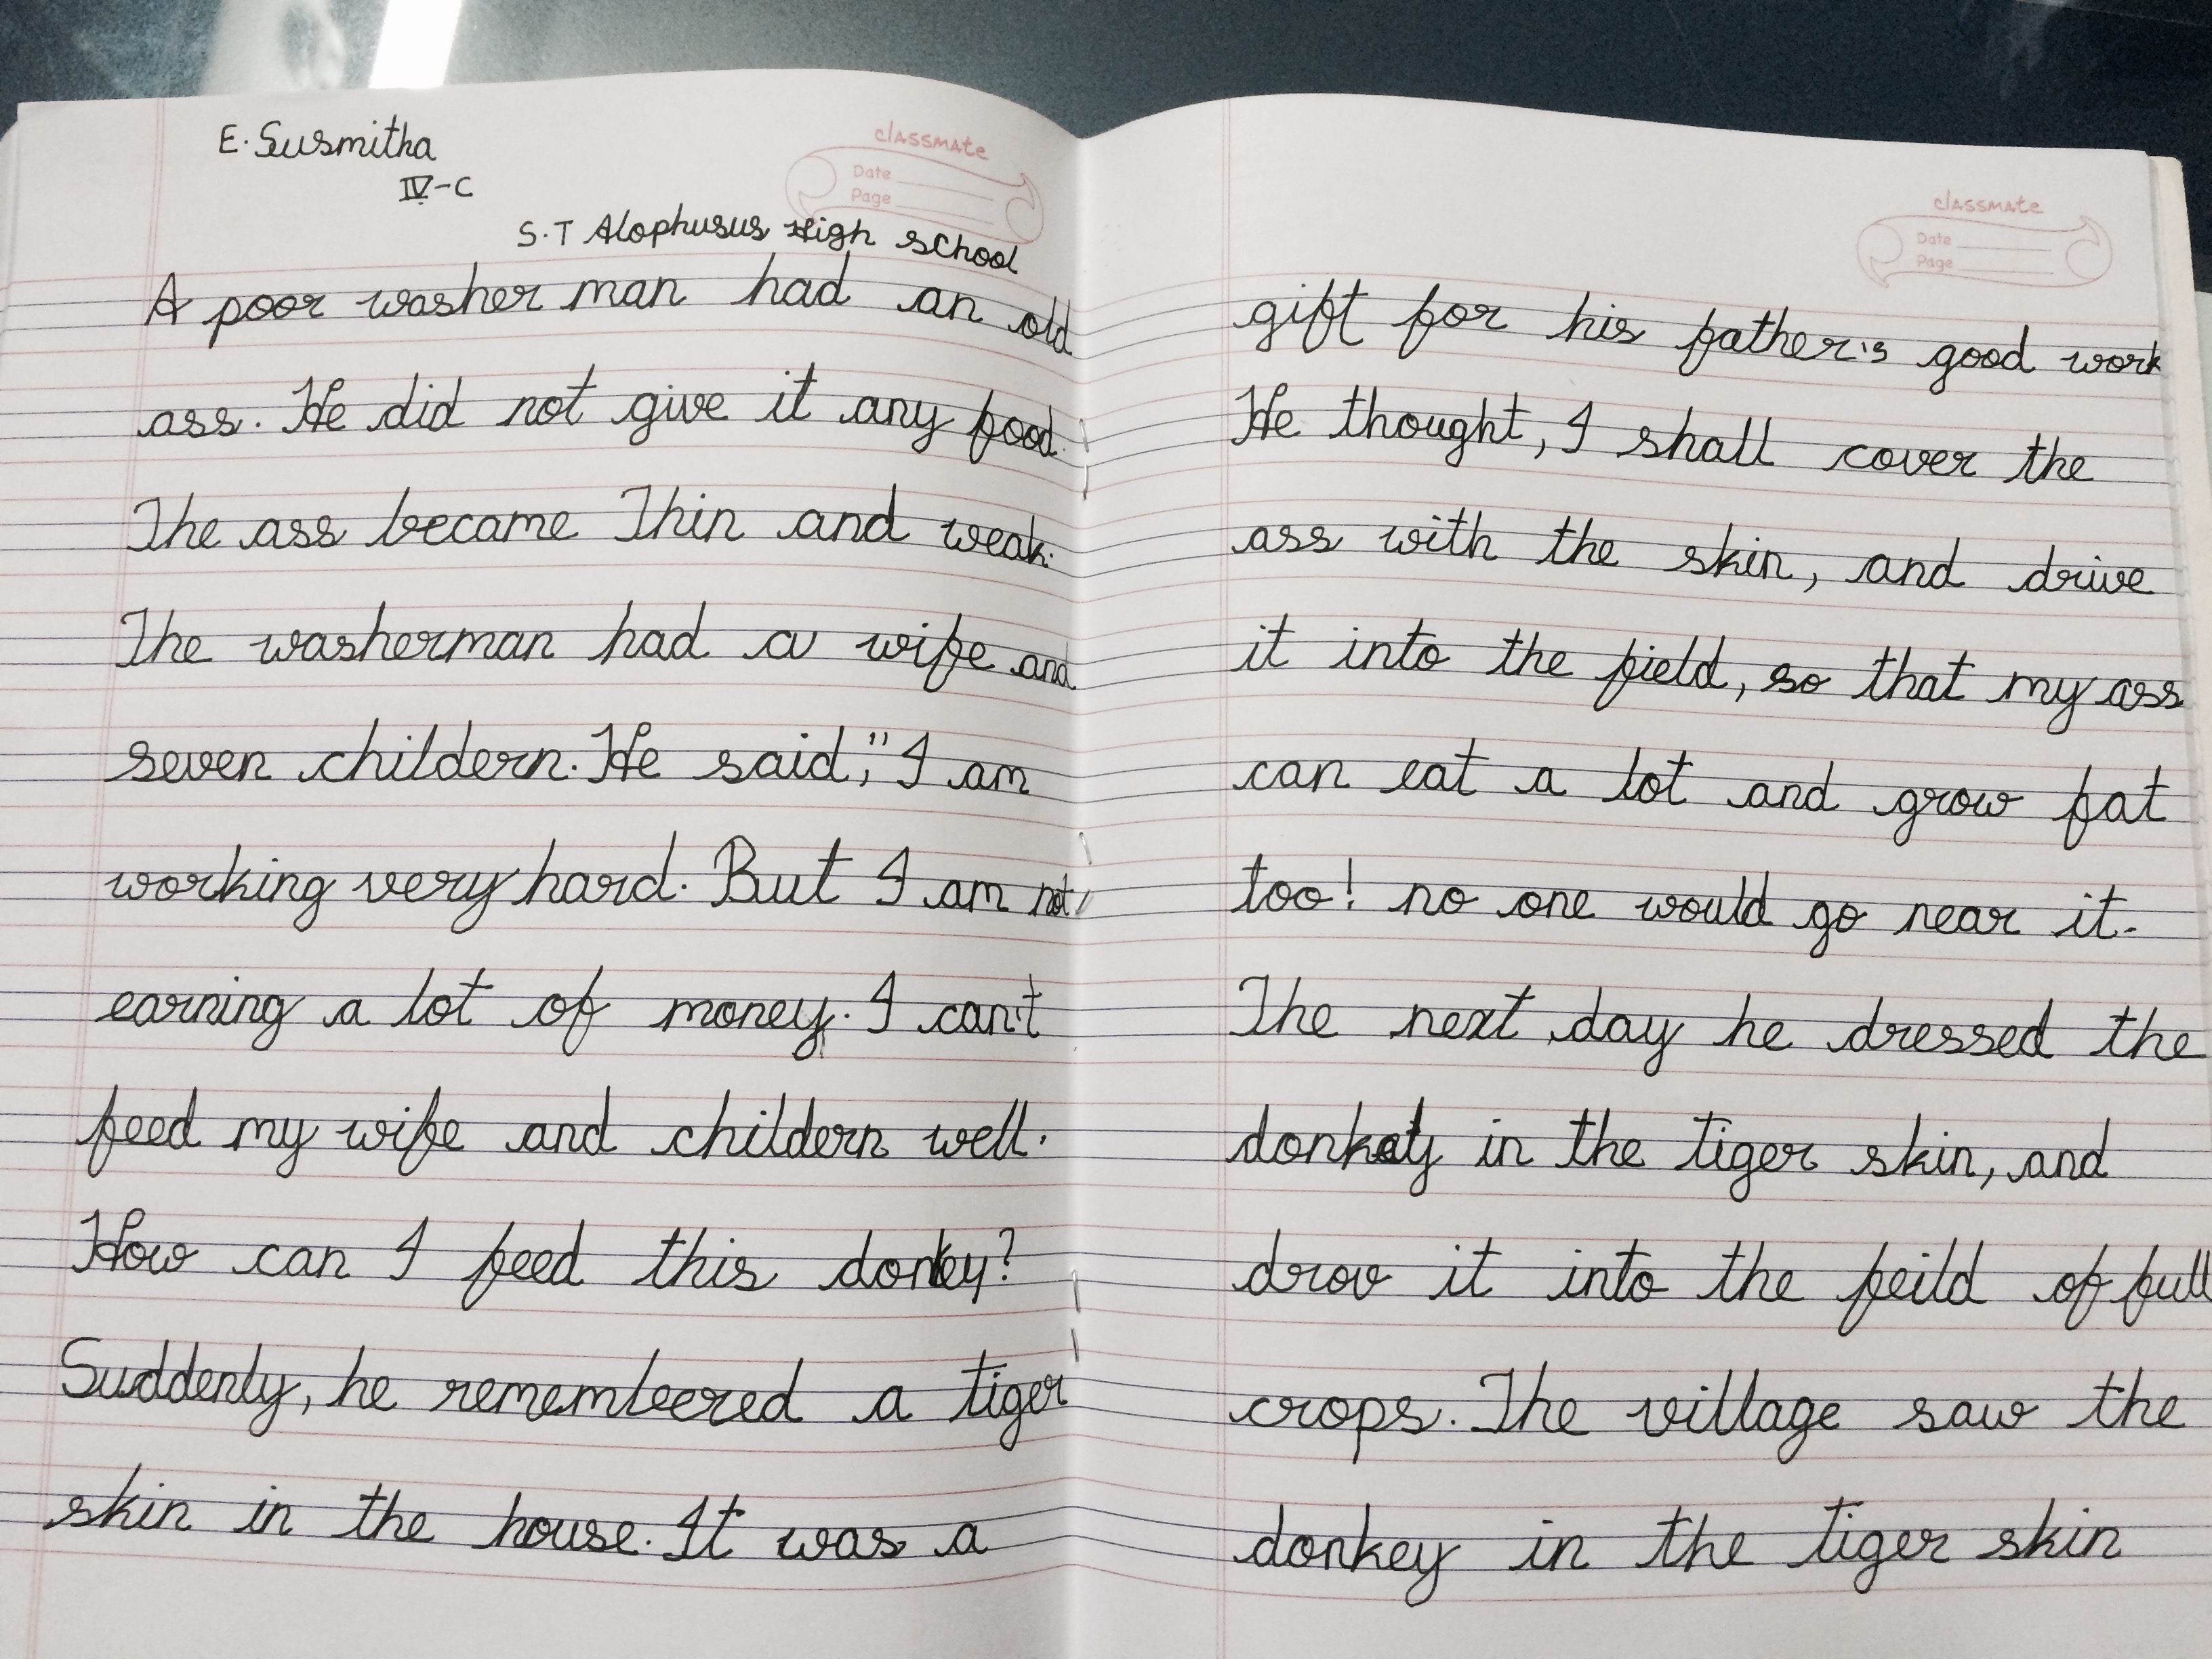 E. Susmitha
IV-C
classmate
Date
Page
S.T Alophusus High school
A poor washer man had an old
ass. He did not give it any food.
The ass became Thin and weak.
The washerman had a wife and
seven childern. He said," I am
working very hard. But I am not
earning a lot of money. I can't
feed my wife and childern well.
How can I feed this donkey?
Suddenly, he remembeered a tiger
skin in the house. It was a
classmate
Date
Page
gift for his father's good work
He thought, I shall cover the
ass with the skin, and drive
it into the field, so that my ass
can eat a lot and grow fat
too! no one would go near it.
The next day he dressed the
in the tiger skin, and
drov it into the feild of full
crops. The village saw the
donkey in the tiger skin